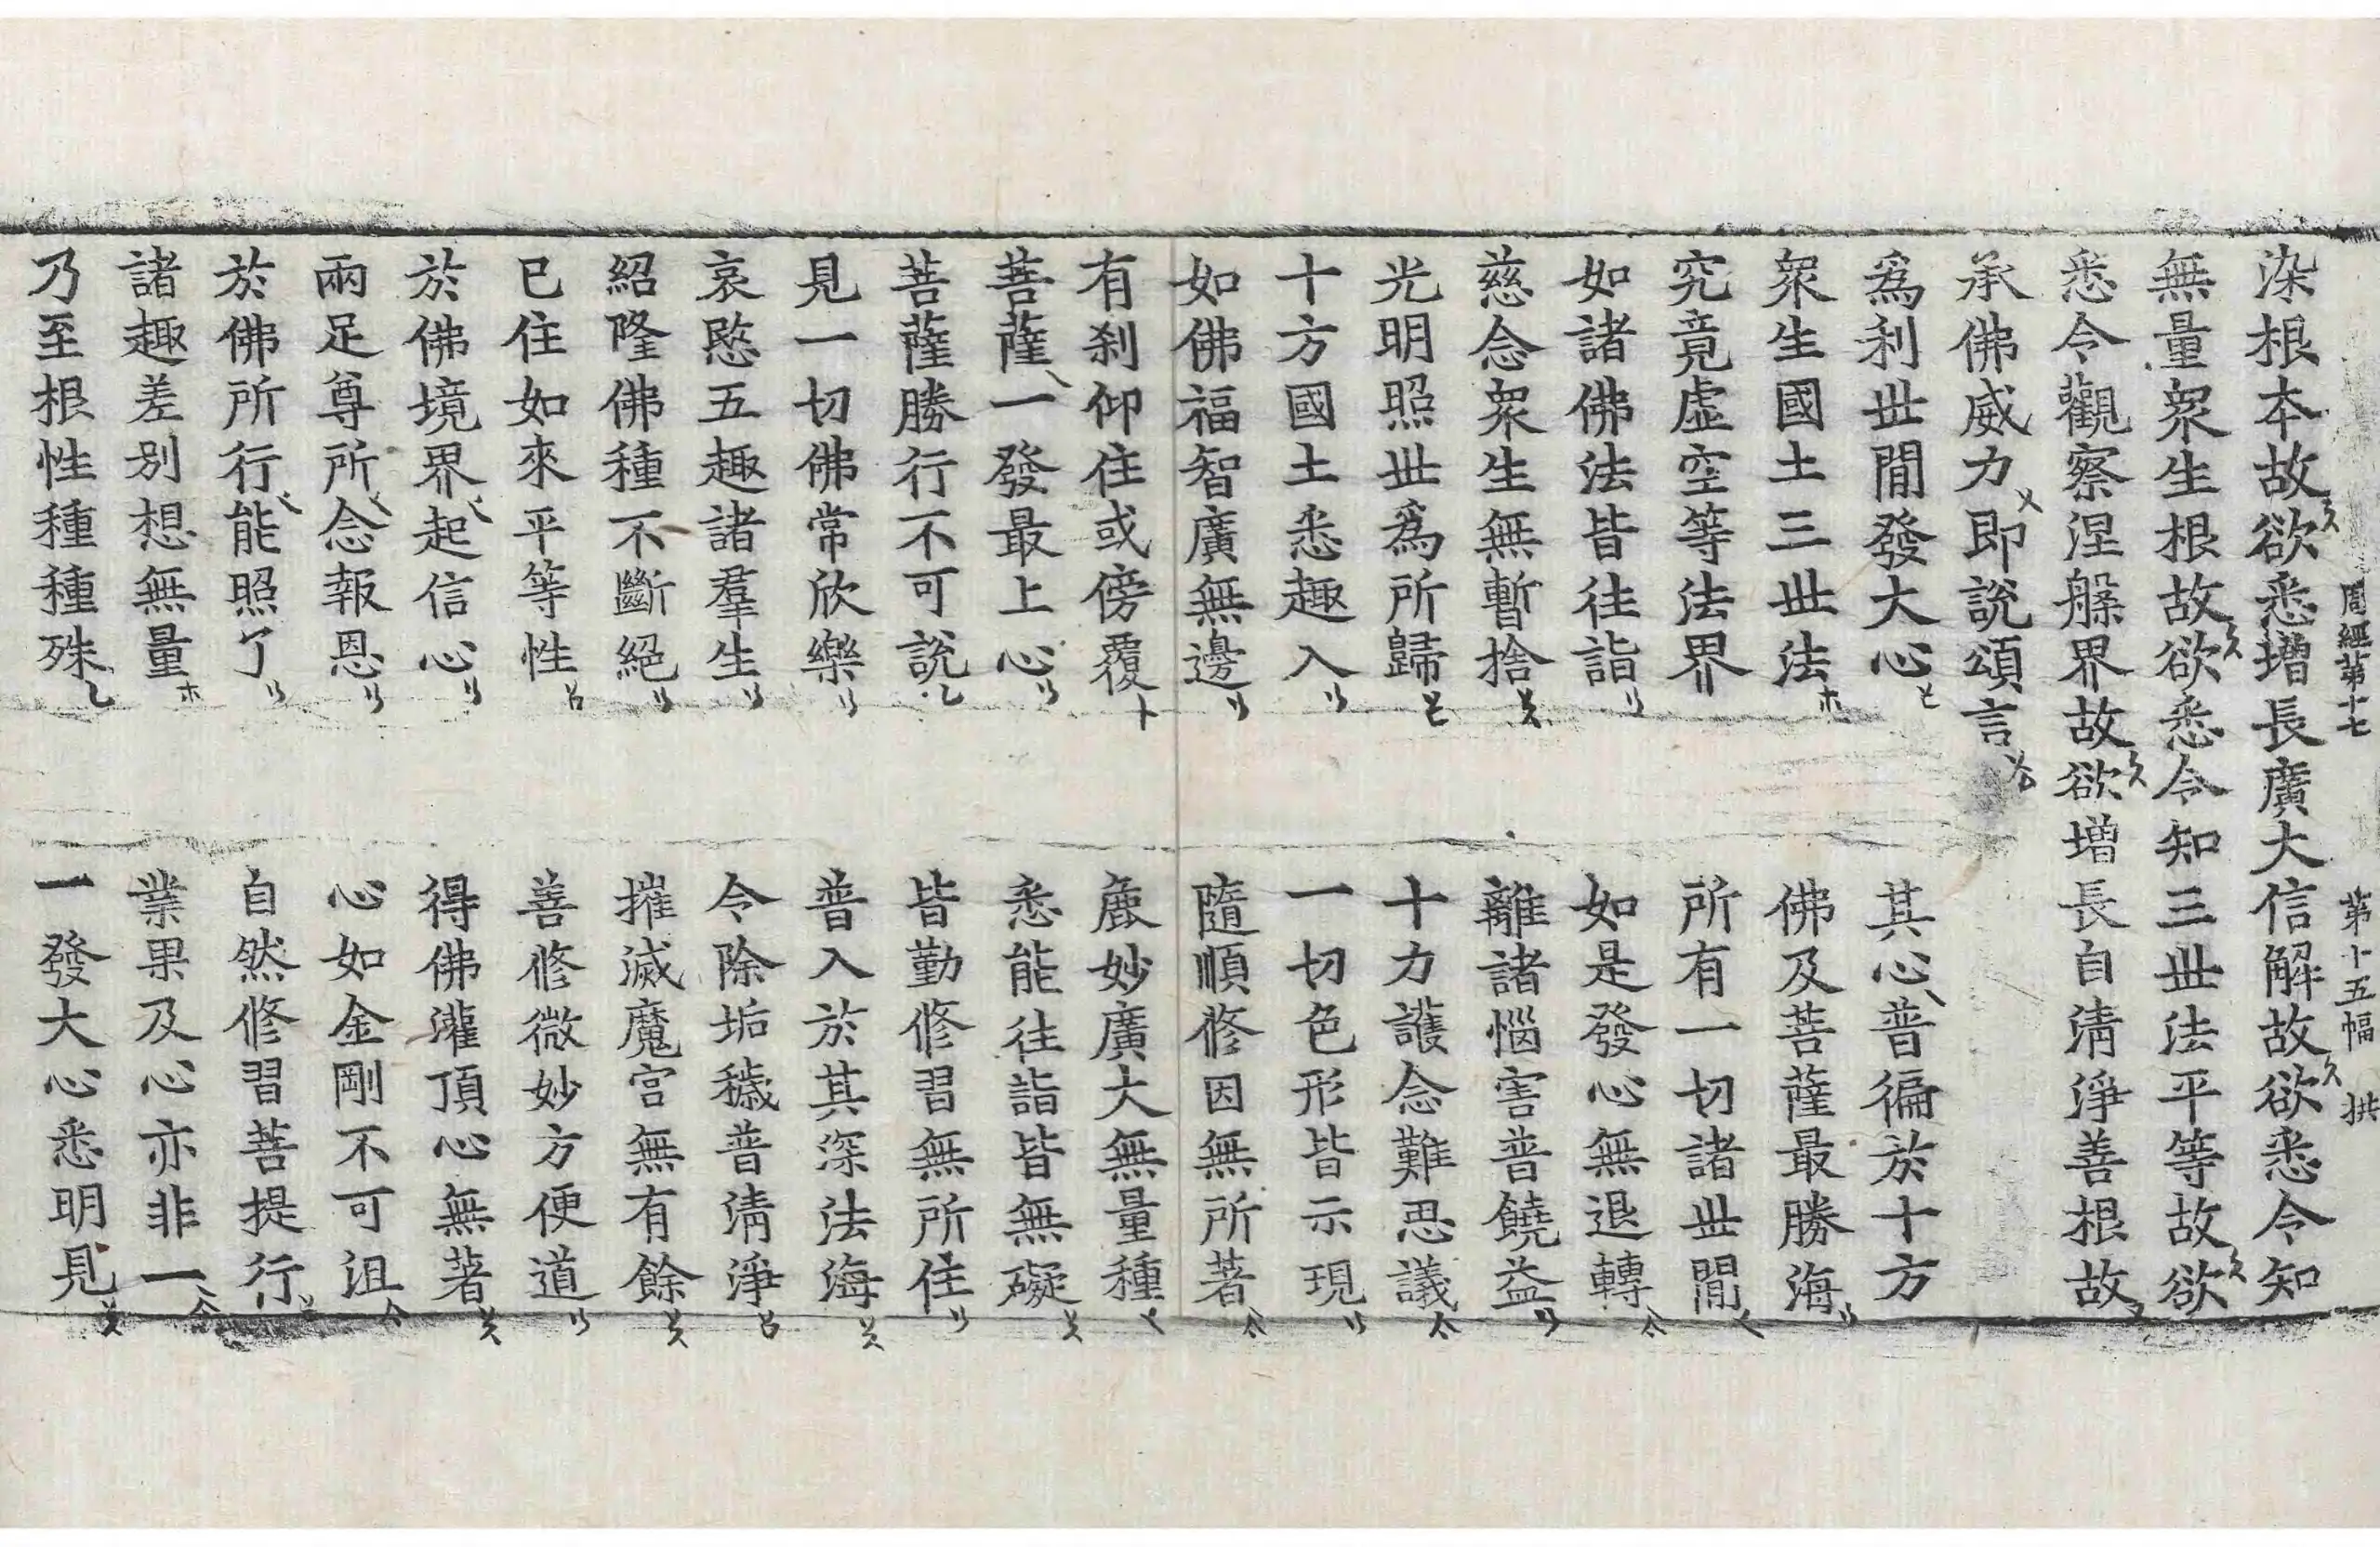 周經第十七 第十五幅 拱
染根本故欲悉增長廣大信解故欲悉令知
無量衆生根故欲悉令知三世法平等故欲
悉令觀察涅槃界故欲增長自淸淨善根故
承佛威力即說頌言
爲利世間發大心 其心普徧於十方
衆生國土三世法 佛及菩薩最勝海
究竟虛空等法界 所有一切諸世間
如諸佛法皆往詣 如是發心無退轉
慈念衆生無暫捨 離諸惱害普饒益
光明照世爲所歸 十力護念難思議
十方國土悉趣入 一切色形皆示現
如佛福智廣無邊 隨順修因無所著
有刹仰住或傍覆 麁妙廣大無量種
菩薩一發最上心 悉能往詣皆無礙
菩薩勝行不可說 皆勤修習無所住
見一切佛常欣樂 普入於其深法海
哀愍五趣諸羣生 令除垢穢普淸淨
紹隆佛種不斷絕 摧滅魔宮無有餘
已住如來平等性 善修微妙方便道
於佛境界起信心 得佛灌頂心無著
兩足尊所念報恩 心如金剛不可沮
於佛所行能照了 自然修習菩提行
諸趣差別想無量 業果及心亦非一
乃至根性種種殊 一發大心悉明見